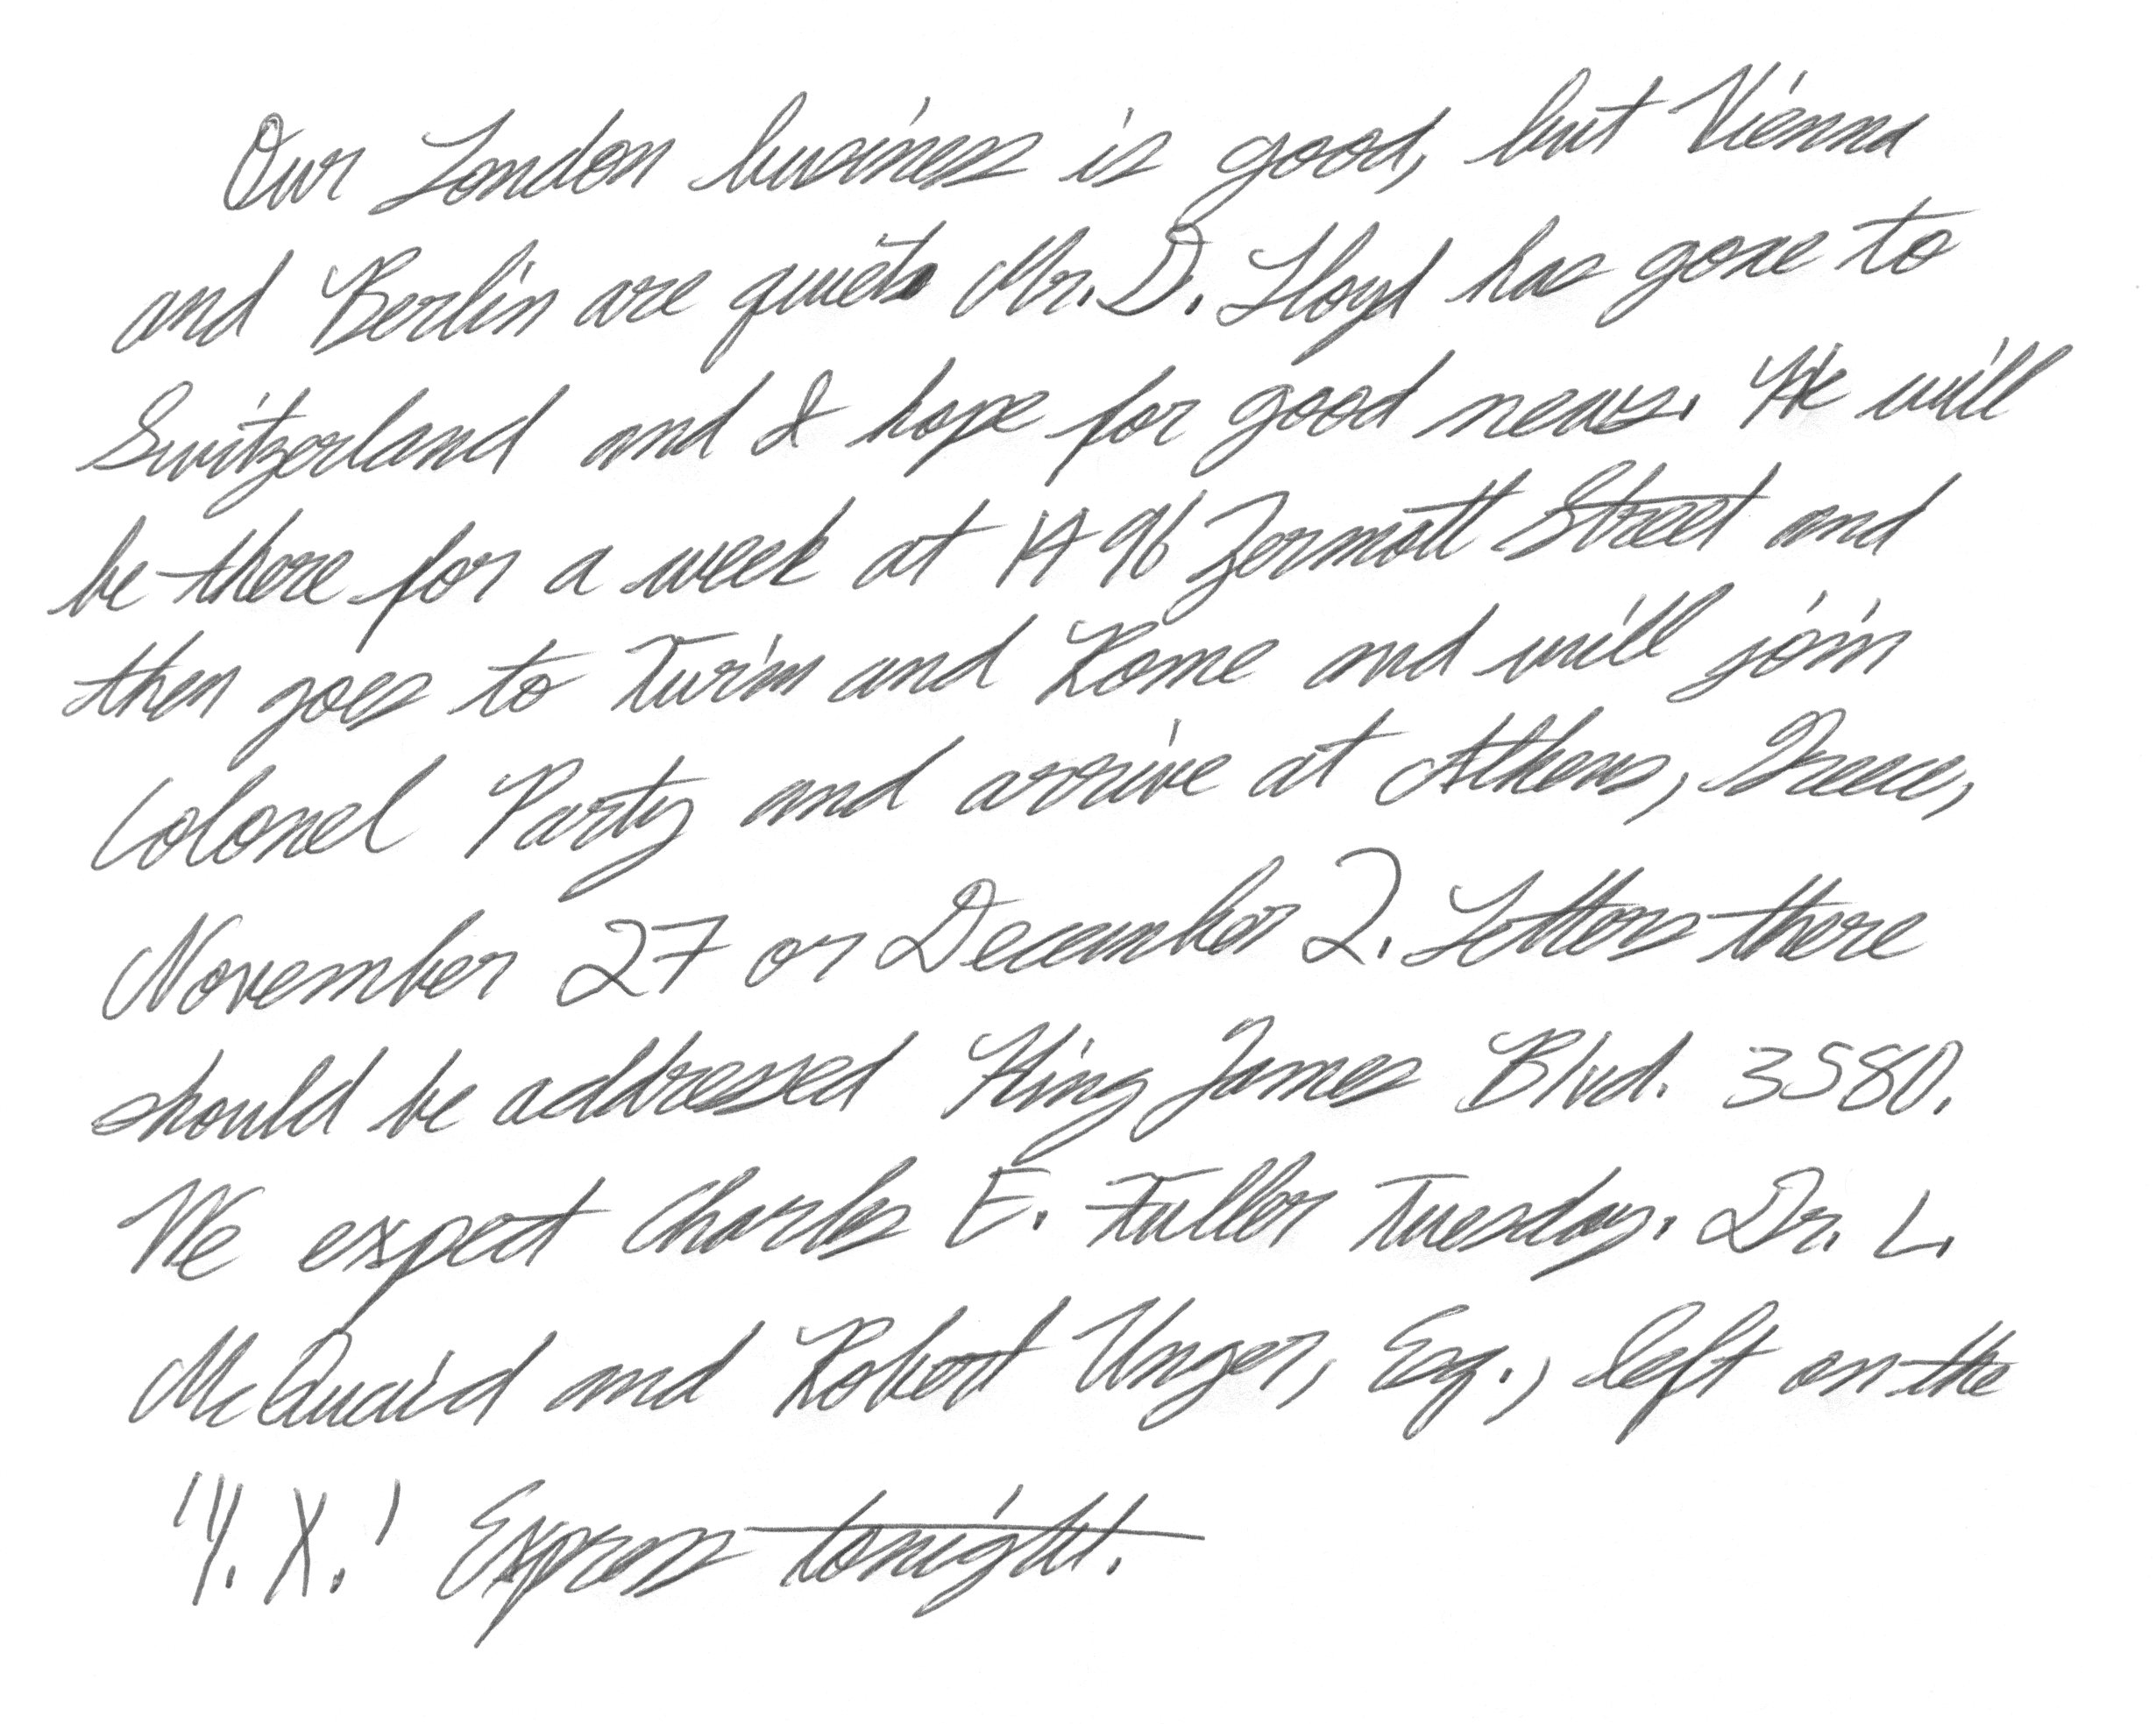 Our London business is good, but Vienna
and Berlin are quiet. Mr. D. Lloyd has gone to
Switzerland and I hope for good news. He will
be there for a week at 1496 Zermott Street and
then goes to Turin and Rome and will join
Colonel Party and arrive at Athens, Greece,
November 27 or December 2. Letters there
should be addressed King James Blvd. 3580.
We expect Charles E. Fuller Tuesday. Dr. L.
McQuaid and Robert Unger, Esq., left on the
'Y. X.' Express tonight.